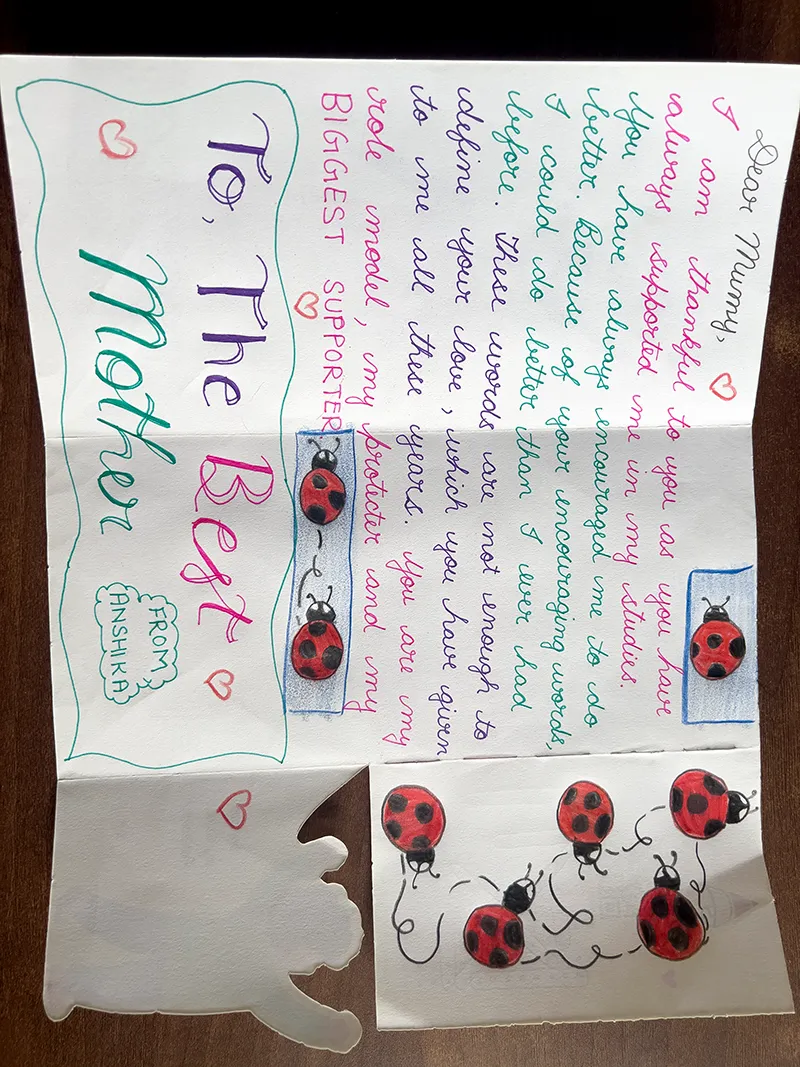 Dear Mumy,
I am thankful to you as you have
always supported me in my studies.
You have always encouraged me to do
better. Because of your encouraging words,
I could do better than I ever had
before. These words are not enough to
define your love, which you have given
to me all these years. You are my
role model, my protecter and my
BIGGEST SUPPORTER
To, The Best
Mother
FROM,
ANSHIKA